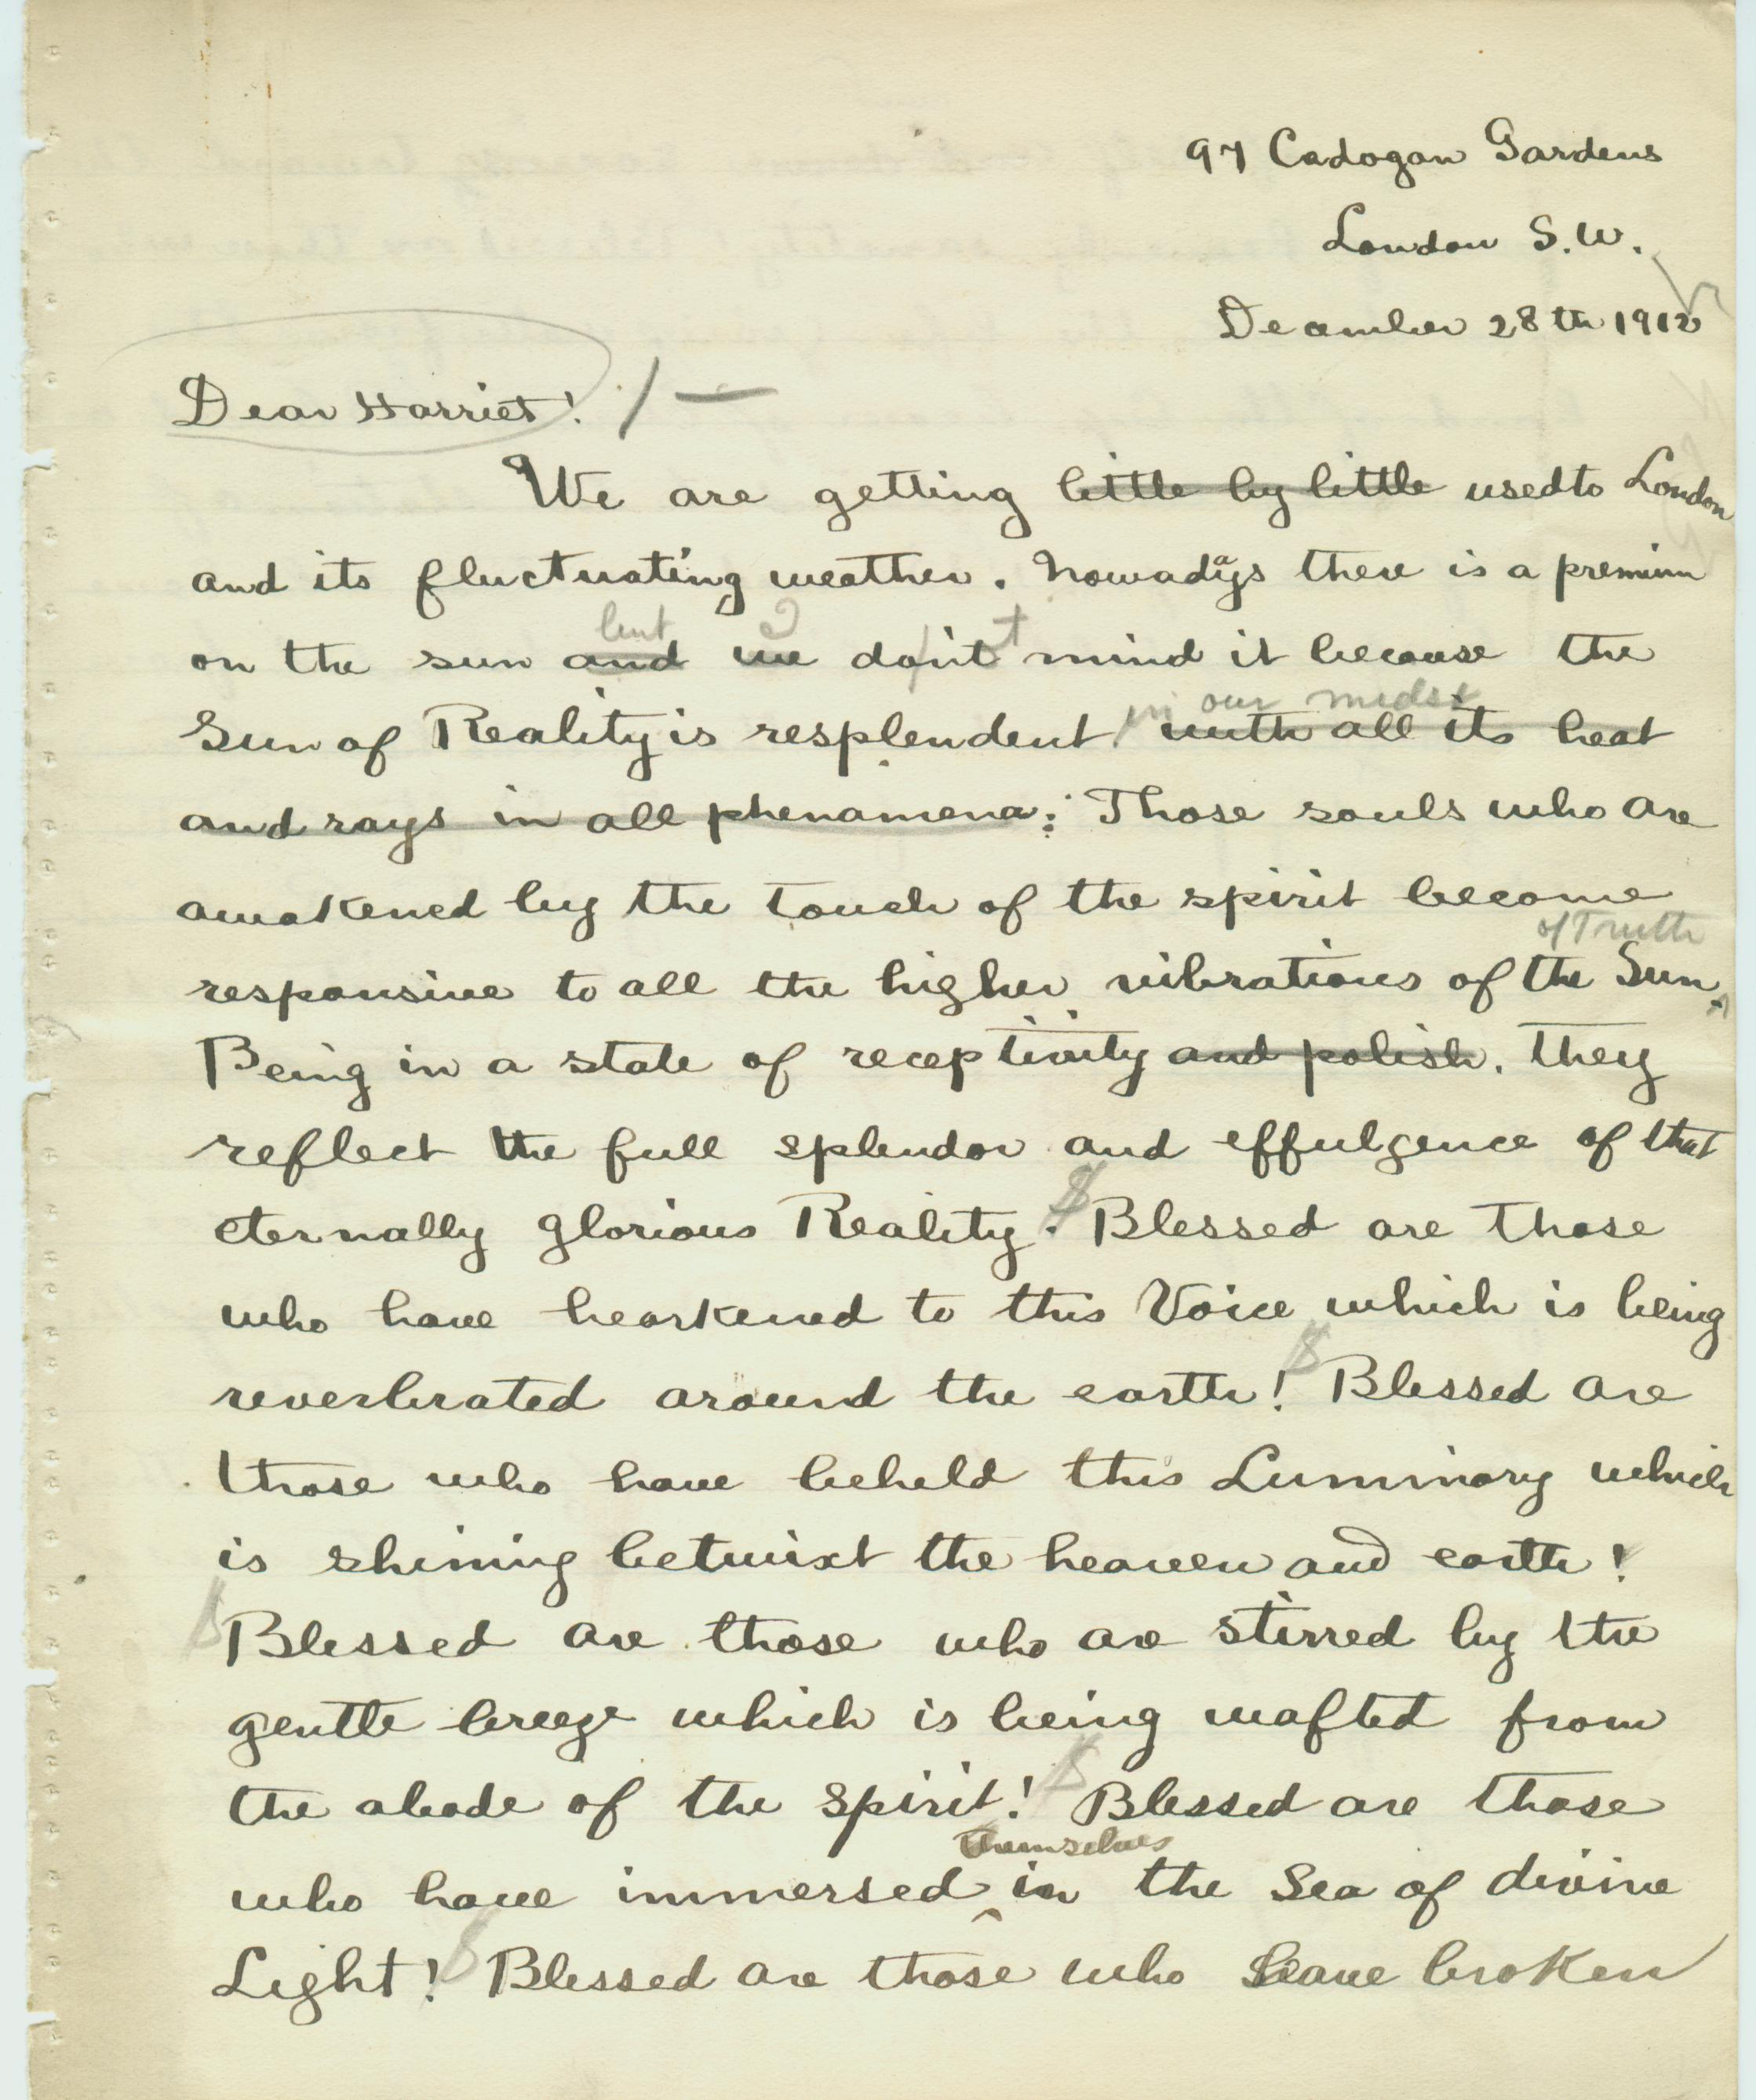 97 Cadogan Gardens
London S.W.
December 28th 1912
Dear Harriet!
We are getting little by little used to London
and its fluctuating weather. Nowadays there is a premium
but
on the sun and we don't mind it because the
in our midst
Sun of Reality is resplendent with all its heat
and rays in all phenamena. Those souls who are
awakened by the touch of the spirit become
of Truth
responsive to all the higher vibrations of the Sun.
Being in a state of receptivity and polish, they
reflect the full splendor and effulgence of that
eternally glorious Reality. Blessed are those
who have hearkened to this Voice which is being
reverbrated around the earth! Blessed are
those who have beheld this Luminary which
is shining betwixt the heaven and earth!
Blessed are those who are stirred by the
gentle breeze which is being wafted from
the abode of the Spirit! Blessed are those
themselves
who have immersed in the Sea of divine
Light! Blessed are those who have broken